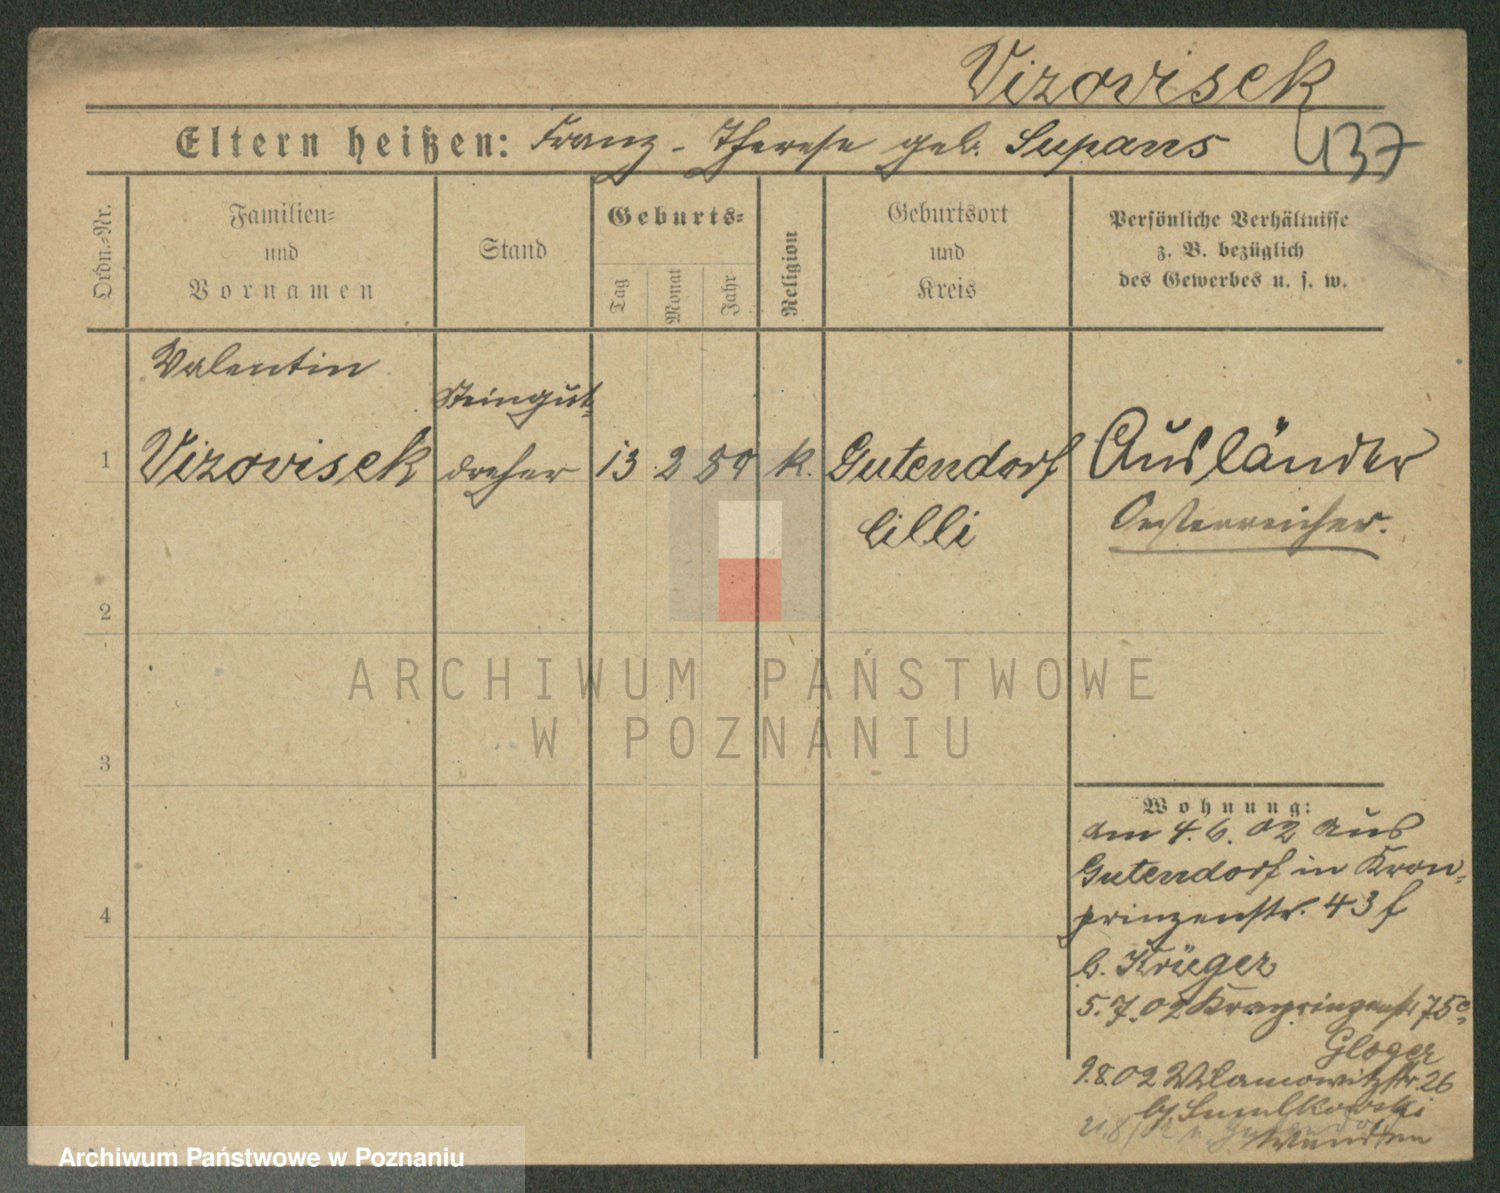 Vizovisek
Eltern heißen: Franz - Therese geb. Supans
137
Ordn.-Nr.
Familien-
und
Vornamen
Stand
Geburts-
Tag
Monat
Jahr
Religion
Geburtsort
und
Kreis
Persönliche Verhältnisse
z. B. bezüglich
des Gewerbes u. s. w.
Valentin
Steingut-
1 Vizovisek dreher 13 2 59 k. Gutendorf Ausländer
Cilli Oesterreicher.
2
ARCHIWUM PAŃSTWOWE
W POZNANIU
3
Wohnung:
am 4.6.02 aus
Gutendorf in Kron-
4
prinzenstr. 43 f
b. Krüger
5.7.02 Kronprinzenstr 75c
Gloger
9.8.02 Wilamowitzstr. 26
b/
21.8
Archiwum Państwowe w Poznaniu